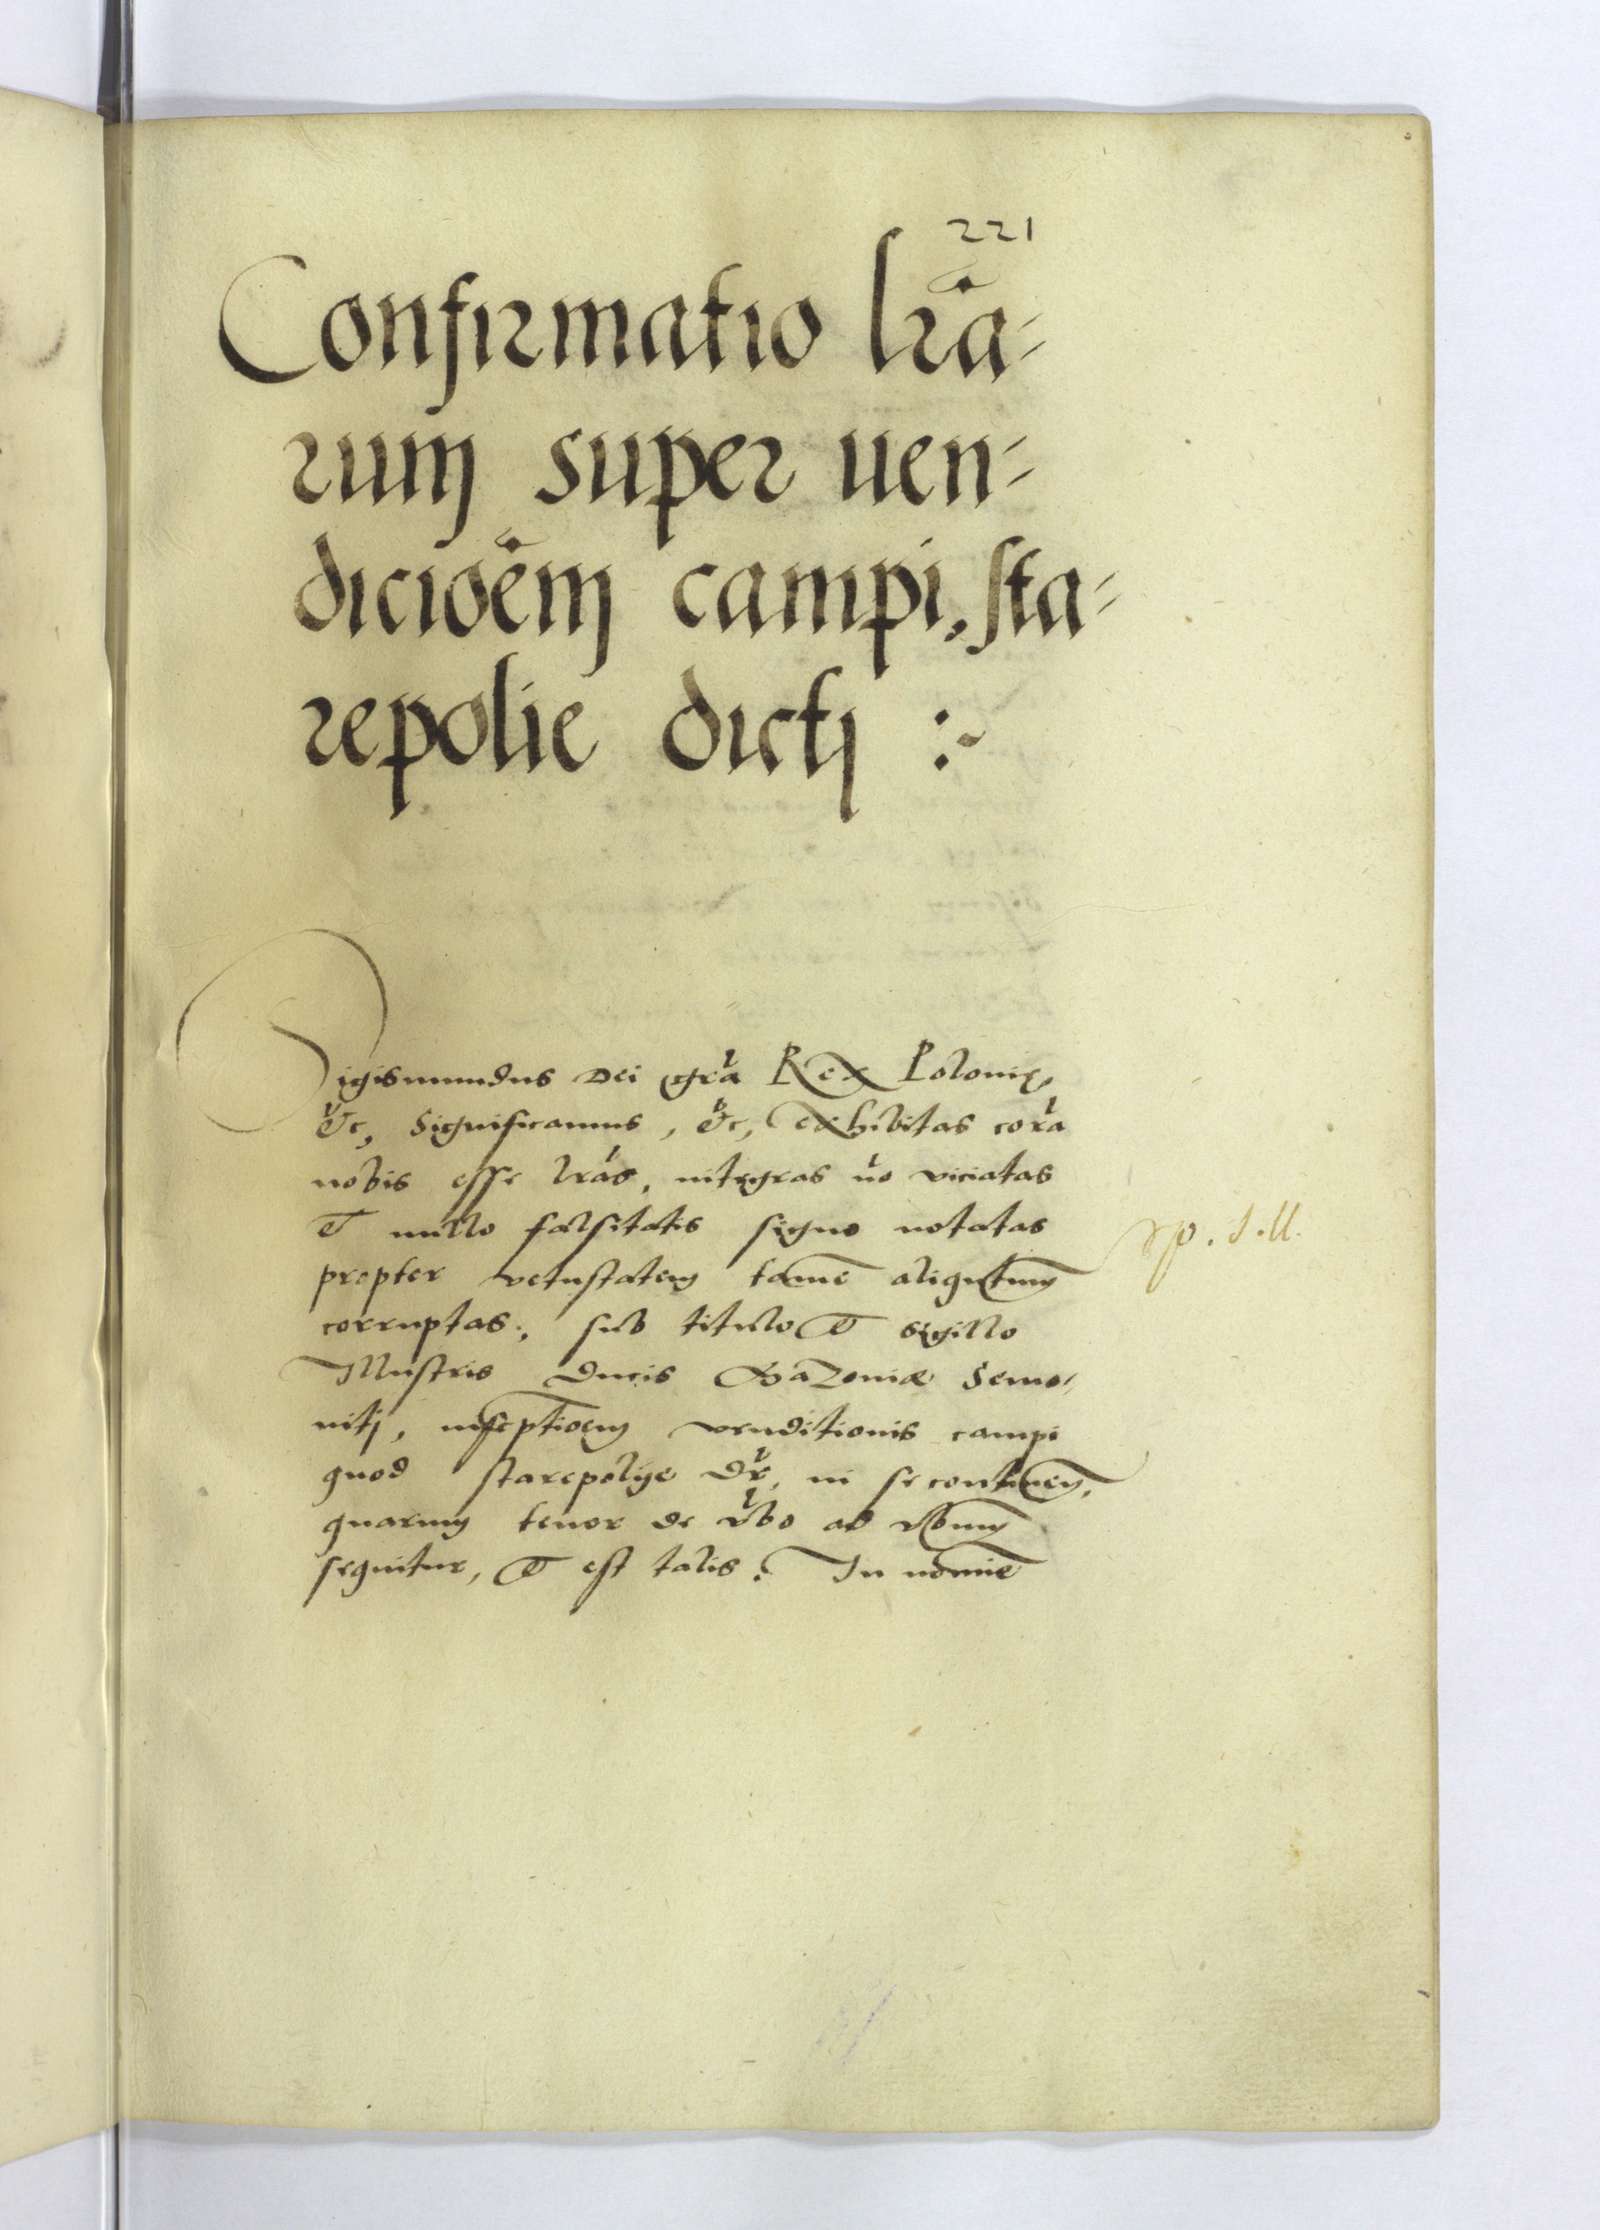 221
Confirmatio lr̃a-
rum super uen-
dicioẽm campi, sta-
repolie dicti :~
Sigismundus Dei gr̃a Rex Polonię,
&c, Significamus, &c, exhibitas corã
nobis esse lr̃as, integras nõ viciatas
& nullo falsitatis signo notatas
propter vetustatem tamẽ aliqñtum
corruptas, sub titulo & sigillo
Illustris Ducis Mazoniæ Semo-
viti, inscptioem venditionis campi
quod starepolije dr̃, in se continen,
quarum tenor de vbo ad vbum
sequitur, & est talis. In nomine